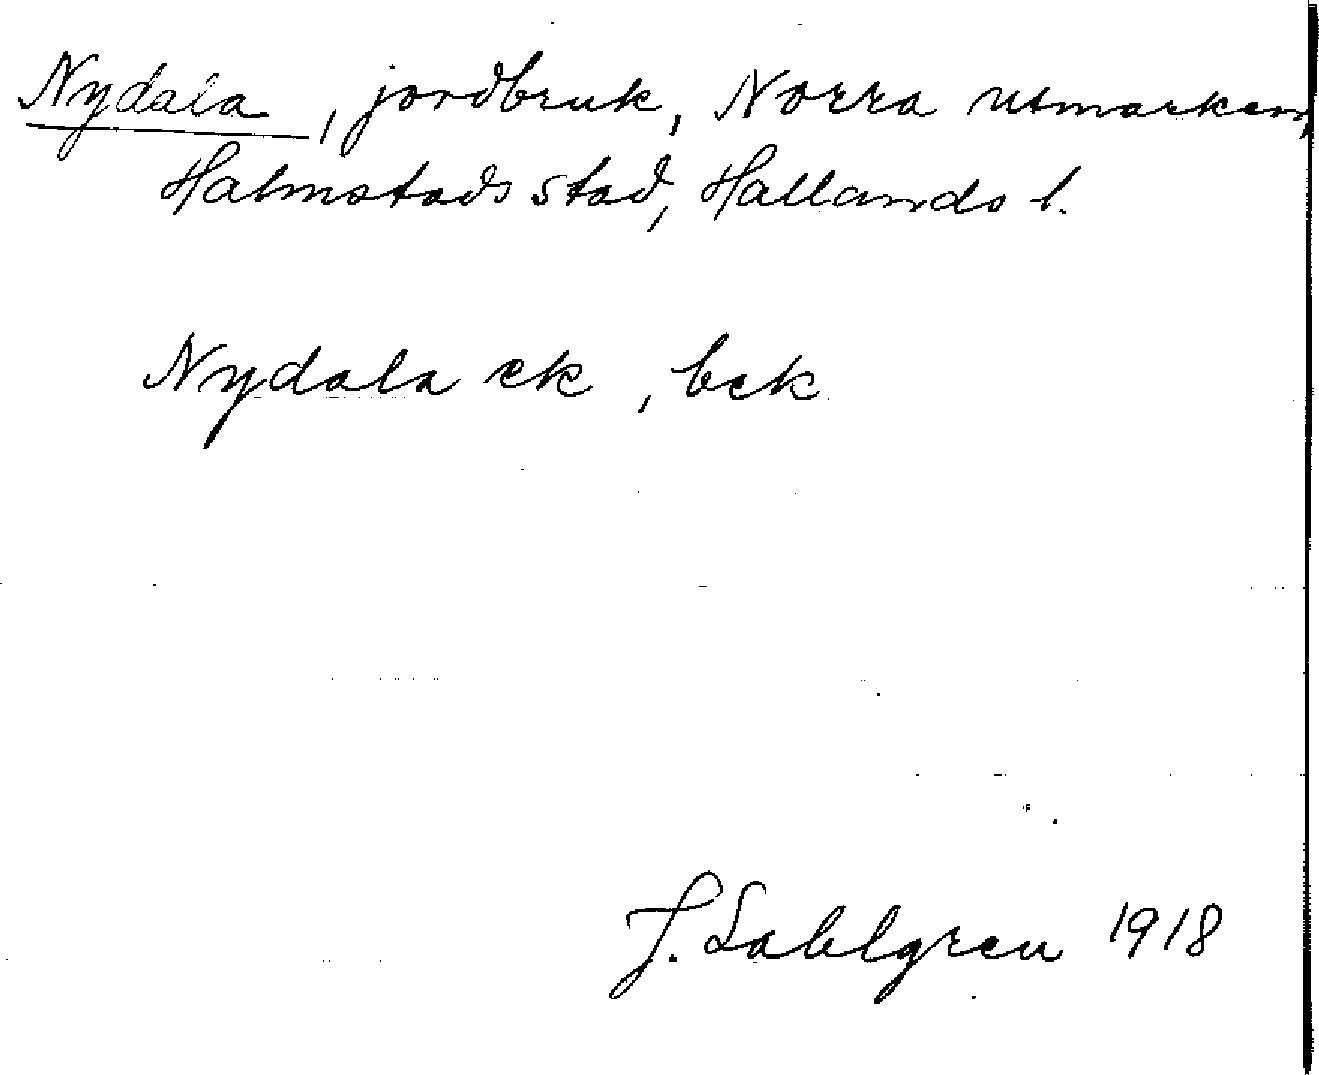 Nydala, jordbruk, Norra utmarken,
Halmstads stad, Hallands l.
Nydala ek, bek
J. Sahlgren 1918